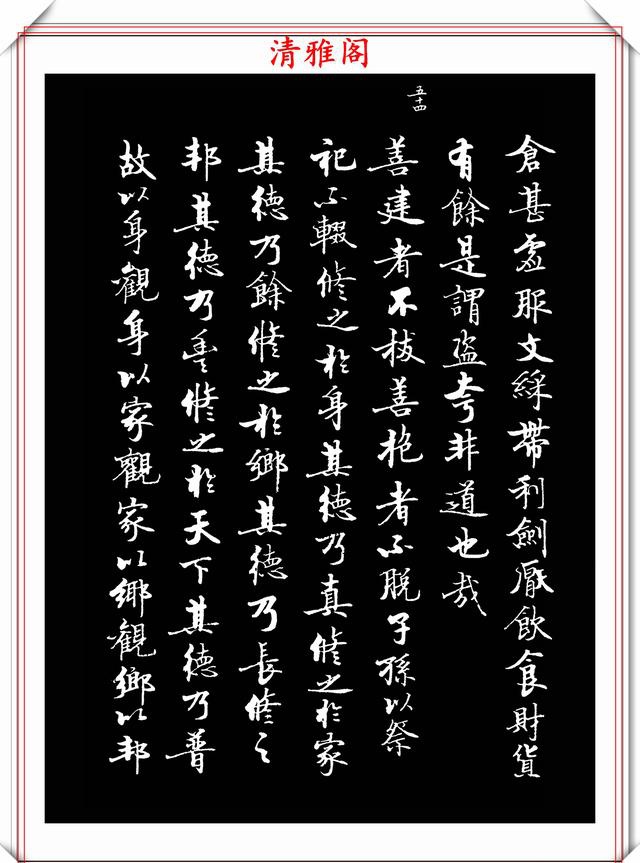 清雅阁
倉甚虛服文綵帶利劍厭飲食財貨
有餘是謂盜夸非道也哉
五十四
善建者不拔善抱者不脫子孫以祭
祀不輟修之於身其德乃真修之於家
其德乃餘修之於鄉其德乃長修之
於邦其德乃豐修之於天下其德乃普
故以身觀身以家觀家以鄉觀鄉以邦